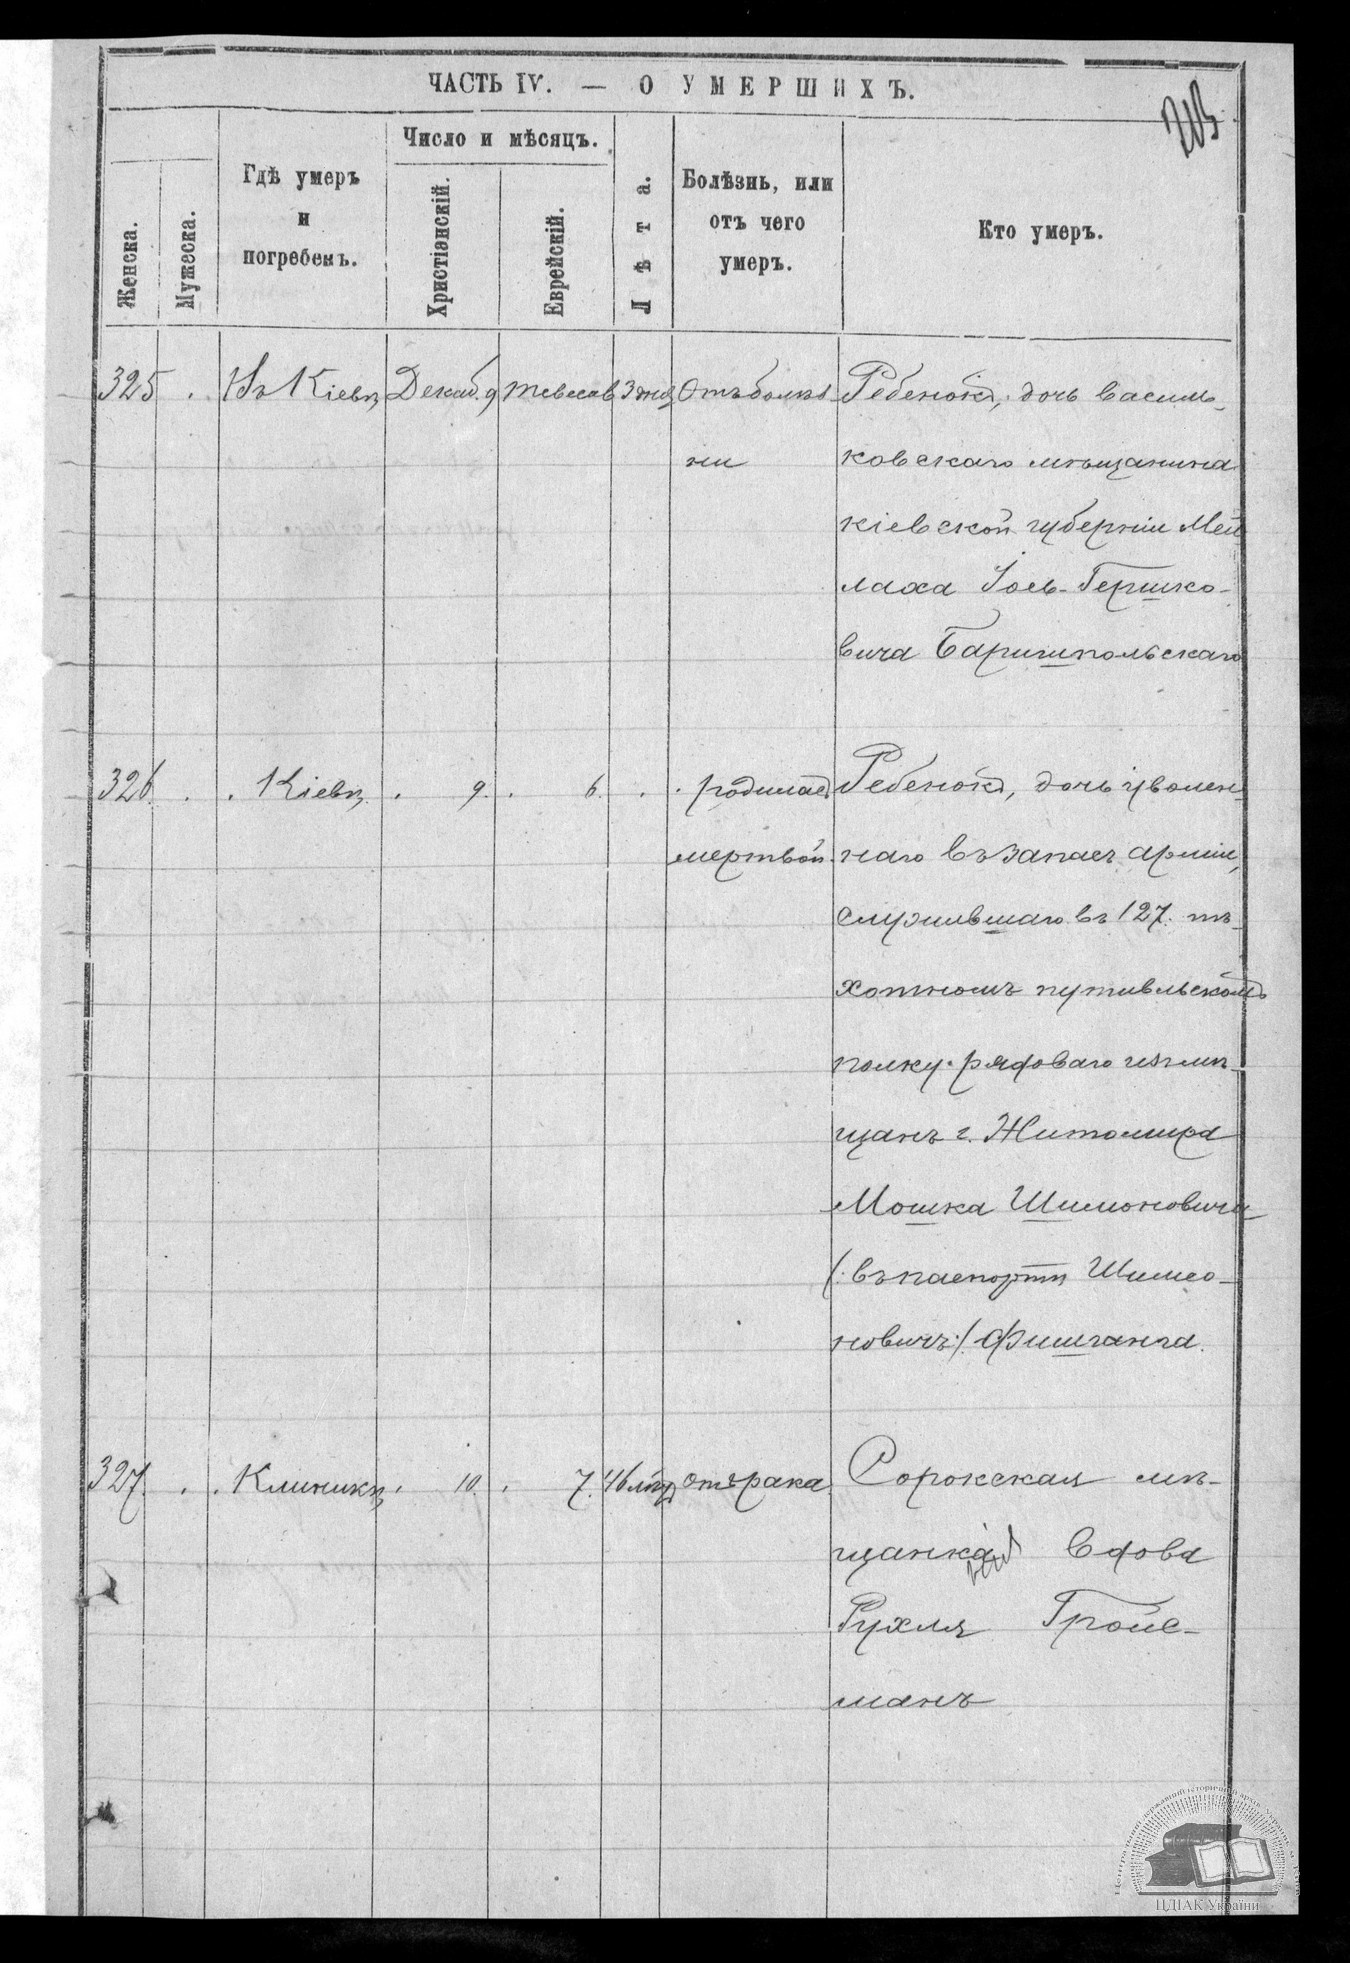 ЧАСТЬ IV. — О УМЕРШИХЪ.
203
Женска.
Мужеска.
Гдѣ умеръ
и
погребенъ.
Число и мѣсяцъ.
Христіанскій.
Еврейскій.
Лѣта.
Болѣзнь, или
отъ чего
умеръ.
Кто умеръ.
325 . Въ Кіевѣ Декаб. 9 3 дня Отъ болѣз- Ребенокъ, дочь василь-
ни ковскаго мѣщанина
кіевской губерніи Мей
лаха Іось-Гершко-
вича Баришпольскаго
326. . . Кіевѣ. . 9. . 6. . . родилась Ребенокъ, дочь уволен-
мертвой. наго въ запасъ арміи,
служившаго въ 127. пѣ-
хотномъ путивльскомъ
полку рядоваго изъ мѣ-
щанъ г. Житомира
Мошка Шимоновича
(: въ паспортѣ Шимсо-
новичъ :) Фишганга.
327. . . Клиникѣ . 10. . 7. 46 лѣтъ отъ рака Сорокская мѣ-
щанка вдова
Рухля Гройс-
манъ
Центральний державний історичний архів України, м. Київ
ЦДІАК України